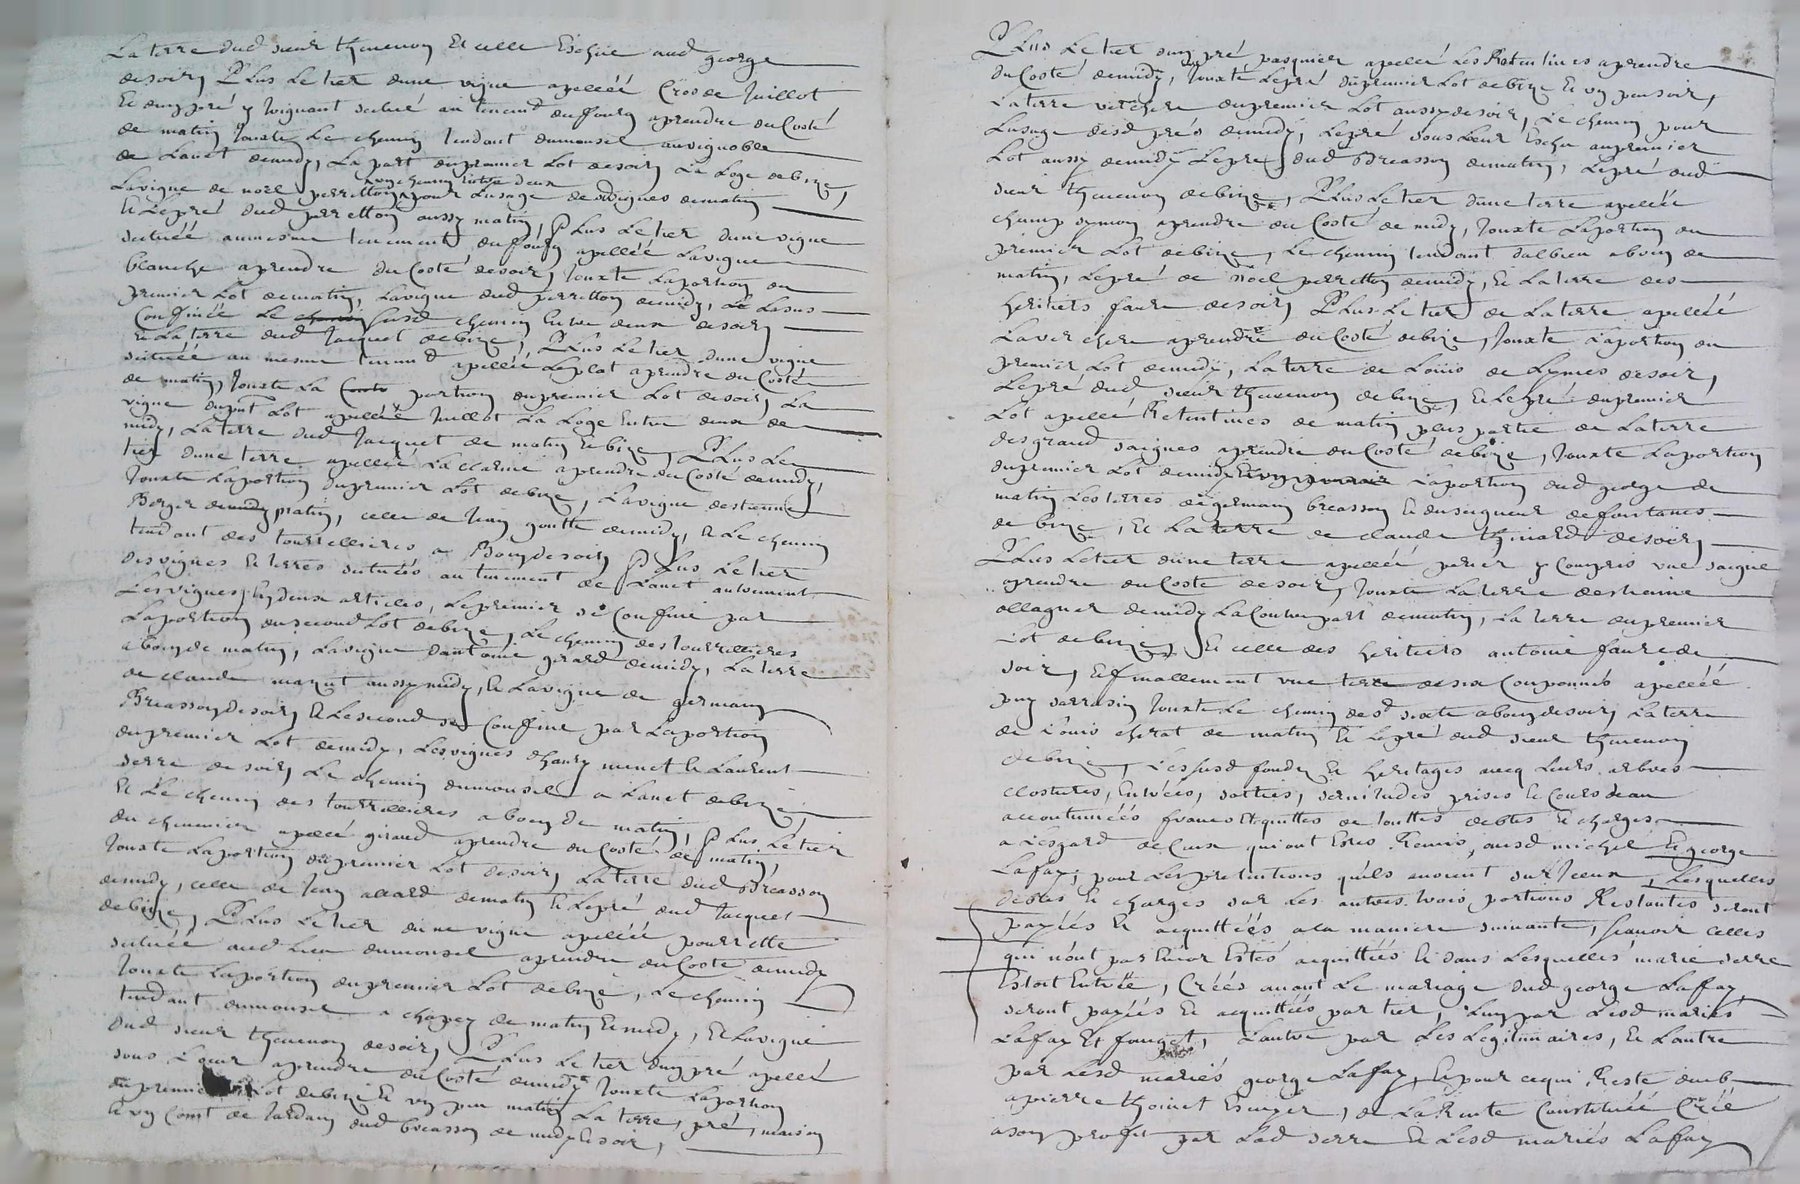 La terre dud sieur thevenon Et celle Escheüe aud george
de soir, Plus Le tier dune vigne apelléé Cros de Juillot
Et dung pré y Joignant scitué au tenemt du foury aprendre du Costé
de matin Jouxte Le chemin tendant dumonsel auvignoble
de Lanet demidy, La part dupremier Lot desoir, La Loge debize,
Lavigne de noel perretton, ung chemin Entre deux pour Lusage desd vignes dematin
Et Lepré dud perretton aussy matin, Plus Le tier dune vigne
scituéé aumesme tenement du foury apelléé Lavigne
blanche aprendre du Costé desoir, Jouxte Laportion du
premier Lot dematin, Lavigne dud perretton demidy, La sus
Confinéé Le susd chemin Entre deux desoir,
Et La terre dud Jacquet debize, Plus Le tier dune vigne
scituéé au mesme tenemt apelléé Leplat aprendre du Costé
de matin, Jouxte La portion dupremier Lot desoir, La
vigne dupnt Lot apelléé Juillot La Loge Entre deux de
midy, La terre dud Jacquet de matin Et bize, Plus Le
tier dune terre apelléé La clarine aprendre du Costé demidy,
Jouxte Laportion dupremier Lot debize, Lavigne destienne
Berger matin, celle de Jean goutte demidy, Et Le chemin
tendant des tourrellieres a Bouy desoir, Plus Le tier
des vignes Et terres scituéés au tenement de Lanet autrement
Les vignes, En deux articles, Lepremier se Confine par
Laportion du second Lot debize, Le chemin des tourrellieres
a bouy de matin, Lavigne dantoine girard demidy, La terre
de claude mazut aussy midy, Et Lavigne de germain
Breasson desoir, Et Lesecond se Confine par Laportion
dupremier Lot demidy, Les vignes dhanry menet Et Laurent
serre desoir, Le chemin dumonsel a Lanet debize,
Et Le chemin des tourrellieres a bouy de matin, Plus Le tier
du chenevier apellé giraud aprendre du Costé de matin,
Jouxte Laportion dupremier Lot desoir, La terre dud Breasson
demidy, celle de Jean allard dematin Et Lepré dud Jacquet
debize, Plus Le tier dune vigne apelléé pourrette
scituéé aud Lieu dumonsel aprendre du Costé demidy
Jouxte Laportion dupremier Lot debize, Le chemin
tendant dumonsel a chapey de matin Et midy, Et Lavigne
dud sieur thevenon desoir, Plus Le tier dung pré apellé
sous Lœur aprendre du Costé demidy Jouxte Laportion
du premier Lot debize Et ung peu matin, La terre, pré, maison
Et ung Coint de Jardain dud breasson de midy Et soir,
Plus Le tier dung pré pasquier apellé Les Retentines aprendre
du Costé demidy, Jouxte Lepré dupremier Lot debize Et ung peu soir,
La terre verchere dupremier Lot aussy desoir, Le chemin pour
Lusage desd prés demidy, Lepré sous Lœur Escheu aupremier
Lot aussy demidy Lepré dud Breasson dematin, Lepré dud
sieur thevenon debize, Plus Le tier dune terre apelléé
champ symon aprendre du Costé de midy, Jouxte Laportion du
premier Lot debize, Le chemin tendant dalbieu abouy de
matin, Lepré de noel perretton demidy, Et La terre des
heritiers faure desoir, Plus Le tier de La terre apelléé
Laverchere aprendre du Costé debize, Jouxte Laportion du
premier Lot demidy, La terre de Loüis de Lymes desoir,
Lepré dud sieur thevenon debize, Et Lepré dupremier
Lot apellé Retentines de matin plus partie de La terre
des grand saignes aprendre du Costé debize, Jouxte Laportion
dupremier Lot demidy Laportion dud george de
matin Les terres de germain breasson Et du seigneur de fontanes
de bize, Et La terre de claude thinard desoir,
Plus Le tier dune terre apelléé perier y Compris une saigne
aprendre du Costé desoir, Jouxte La terre destienne
ollagner demidy La Contrepart dematin, La terre dupremier
Lot debize, Et celle des heritiers antoine faure de
soir, Et finallement une terre desix Couponnés apelléé
puy sarrasin Jouxte Le chemin de st sixte abouy desoir, La terre
de Loüis cherat de matin Et Lepré dud sieur thevenon
debize, Les susd fondz Et heritages avecq Leurs arbres
clostures, Entréés, sorties, servitudes prises Et Cours deau
accoutuméés francs Et quittes de touttes debtes Et charges
a Lesgard de Ceux qui ont Estés Remis, ausd michel Et george
Lafay, pour Les pretentions quils avoient sur Iceux, Lesquelles
debtes Et charges sur Les autres trois portions Restantes seront
payéés Et acquittéés ala maniere suivante, scavoir celles
qui nont pas Encor Estés acquittéés Et dans Lesquelles marie serre
Estoit Entréé, Créés avant Le mariage dud george Lafay
seront payéés Et acquittéés par tier, Lung par Lesd mariés
Lafay Et fouget, Lautre par Les Legitimaires, Et Lautre
par Lesd mariés george Lafay, Et pour cequi Reste deub
apierre thoinet Escuyer, de La Rente Constituéé Créé
ason profit par Lad serre Et Lesd mariés Lafay